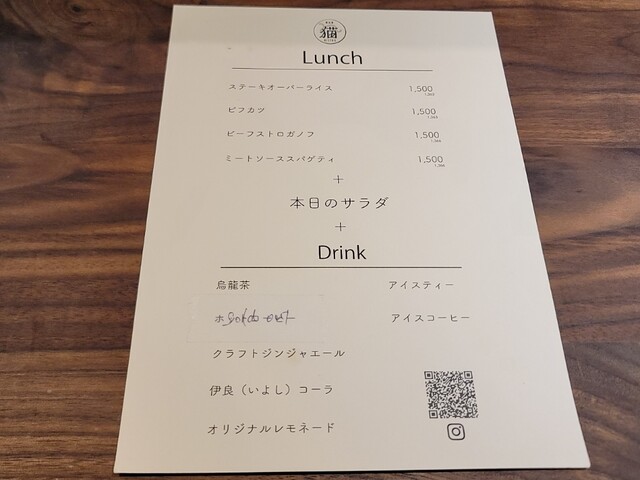 猫
Lunch
ステーキオーバーライス 1,500
ビフカツ 1,500
ビーフストロガノフ 1,500
ミートソーススパゲティ 1,500
+
本日のサラダ
+
Drink
烏龍茶 アイスティー
ホ out アイスコーヒー
クラフトジンジャエール
伊良（いよし）コーラ
オリジナルレモネード